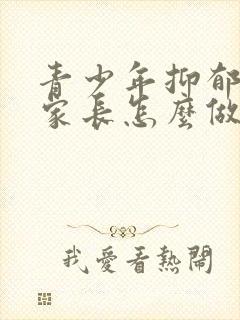 青少年抑郁
家長怎麼做
我愛看熱鬧